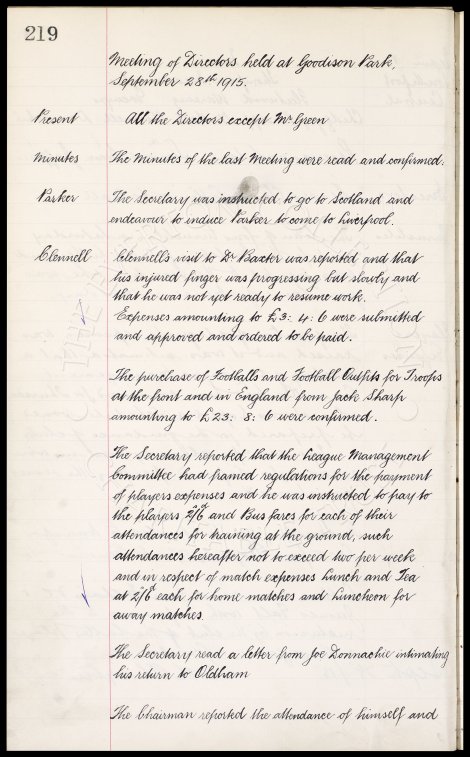 219
Meeting of Directors held at Goodison Park,
September 28th 1915.
Present All the Directors except Mr Green
Minutes The Minutes of the last Meeting were read and confirmed.
Parker The Secretary was instructed to go to Scotland and
endeavour to induce Parker to come to Liverpool.
Clennell Clennell's visit to Dr Baxter was reported and that
his injured finger was progressing but slowly and
that he was not yet ready to resume work.
Expenses amounting to £3: 4: 6 were submitted
and approved and ordered to be paid.
The purchase of Footballs and Football Outfits for Troops
at the front and in England from Jack Sharp
amounting to £23: 8: 6 were confirmed.
The Secretary reported that the League Management
Committee had framed regulations for the payment
of players expenses and he was instructed to pay to
the players 2/6d and Bus fares for each of their
attendances for training at the ground, such
attendances hereafter not to exceed two per week
and in respect of match expenses Lunch and Tea
at 2/6 each for home matches and Luncheon for
away matches.
The Secretary read a letter from Joe Donnachie intimating
his return to Oldham
The Chairman reported the attendance of himself and